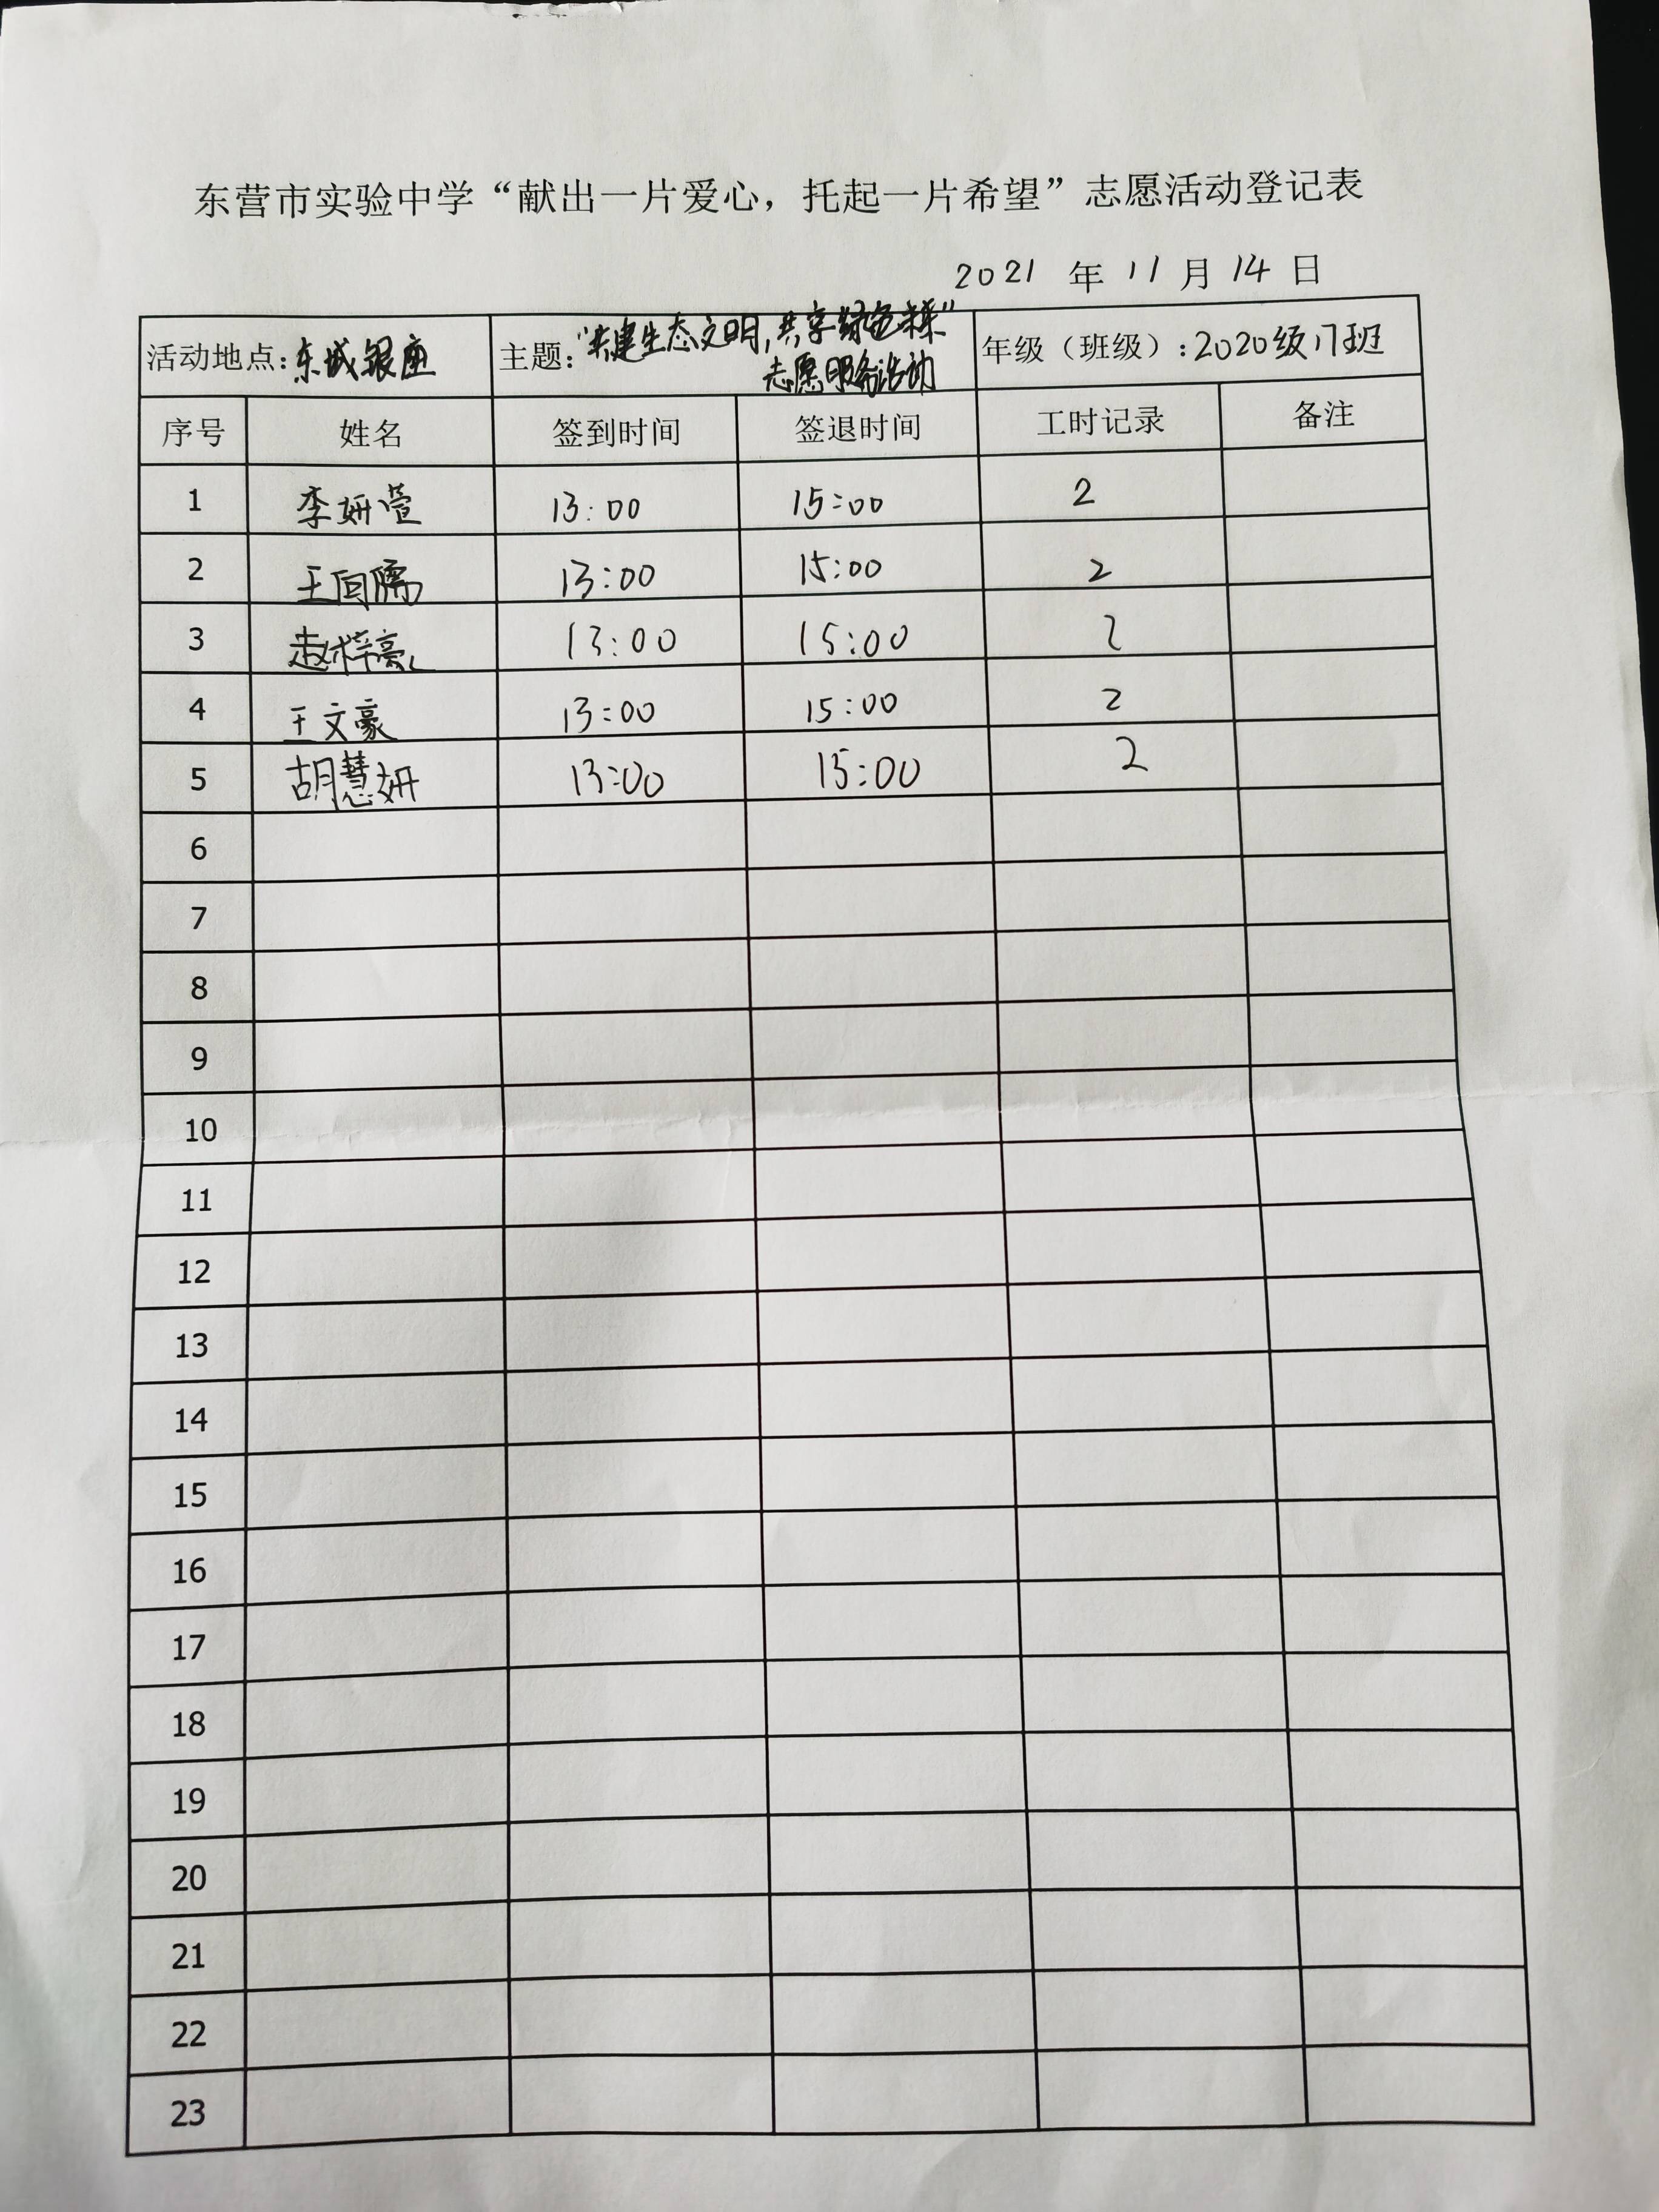 东营市实验中学“献出一片爱心，托起一片希望”志愿活动登记表
2021 年 11 月 14 日
活动地点：东城银座 主题：“共建生态文明，共享绿色未来” 年级（班级）：2020级17班
志愿服务活动
序号 姓名 签到时间 签退时间 工时记录 备注
1 李妍萱 13:00 15:00 2
2 王 13:00 15:00 2
3 赵梓豪 13:00 15:00 2
4 王文豪 13:00 15:00 2
5 胡慧妍 13:00 15:00 2
6
7
8
9
10
11
12
13
14
15
16
17
18
19
20
21
22
23